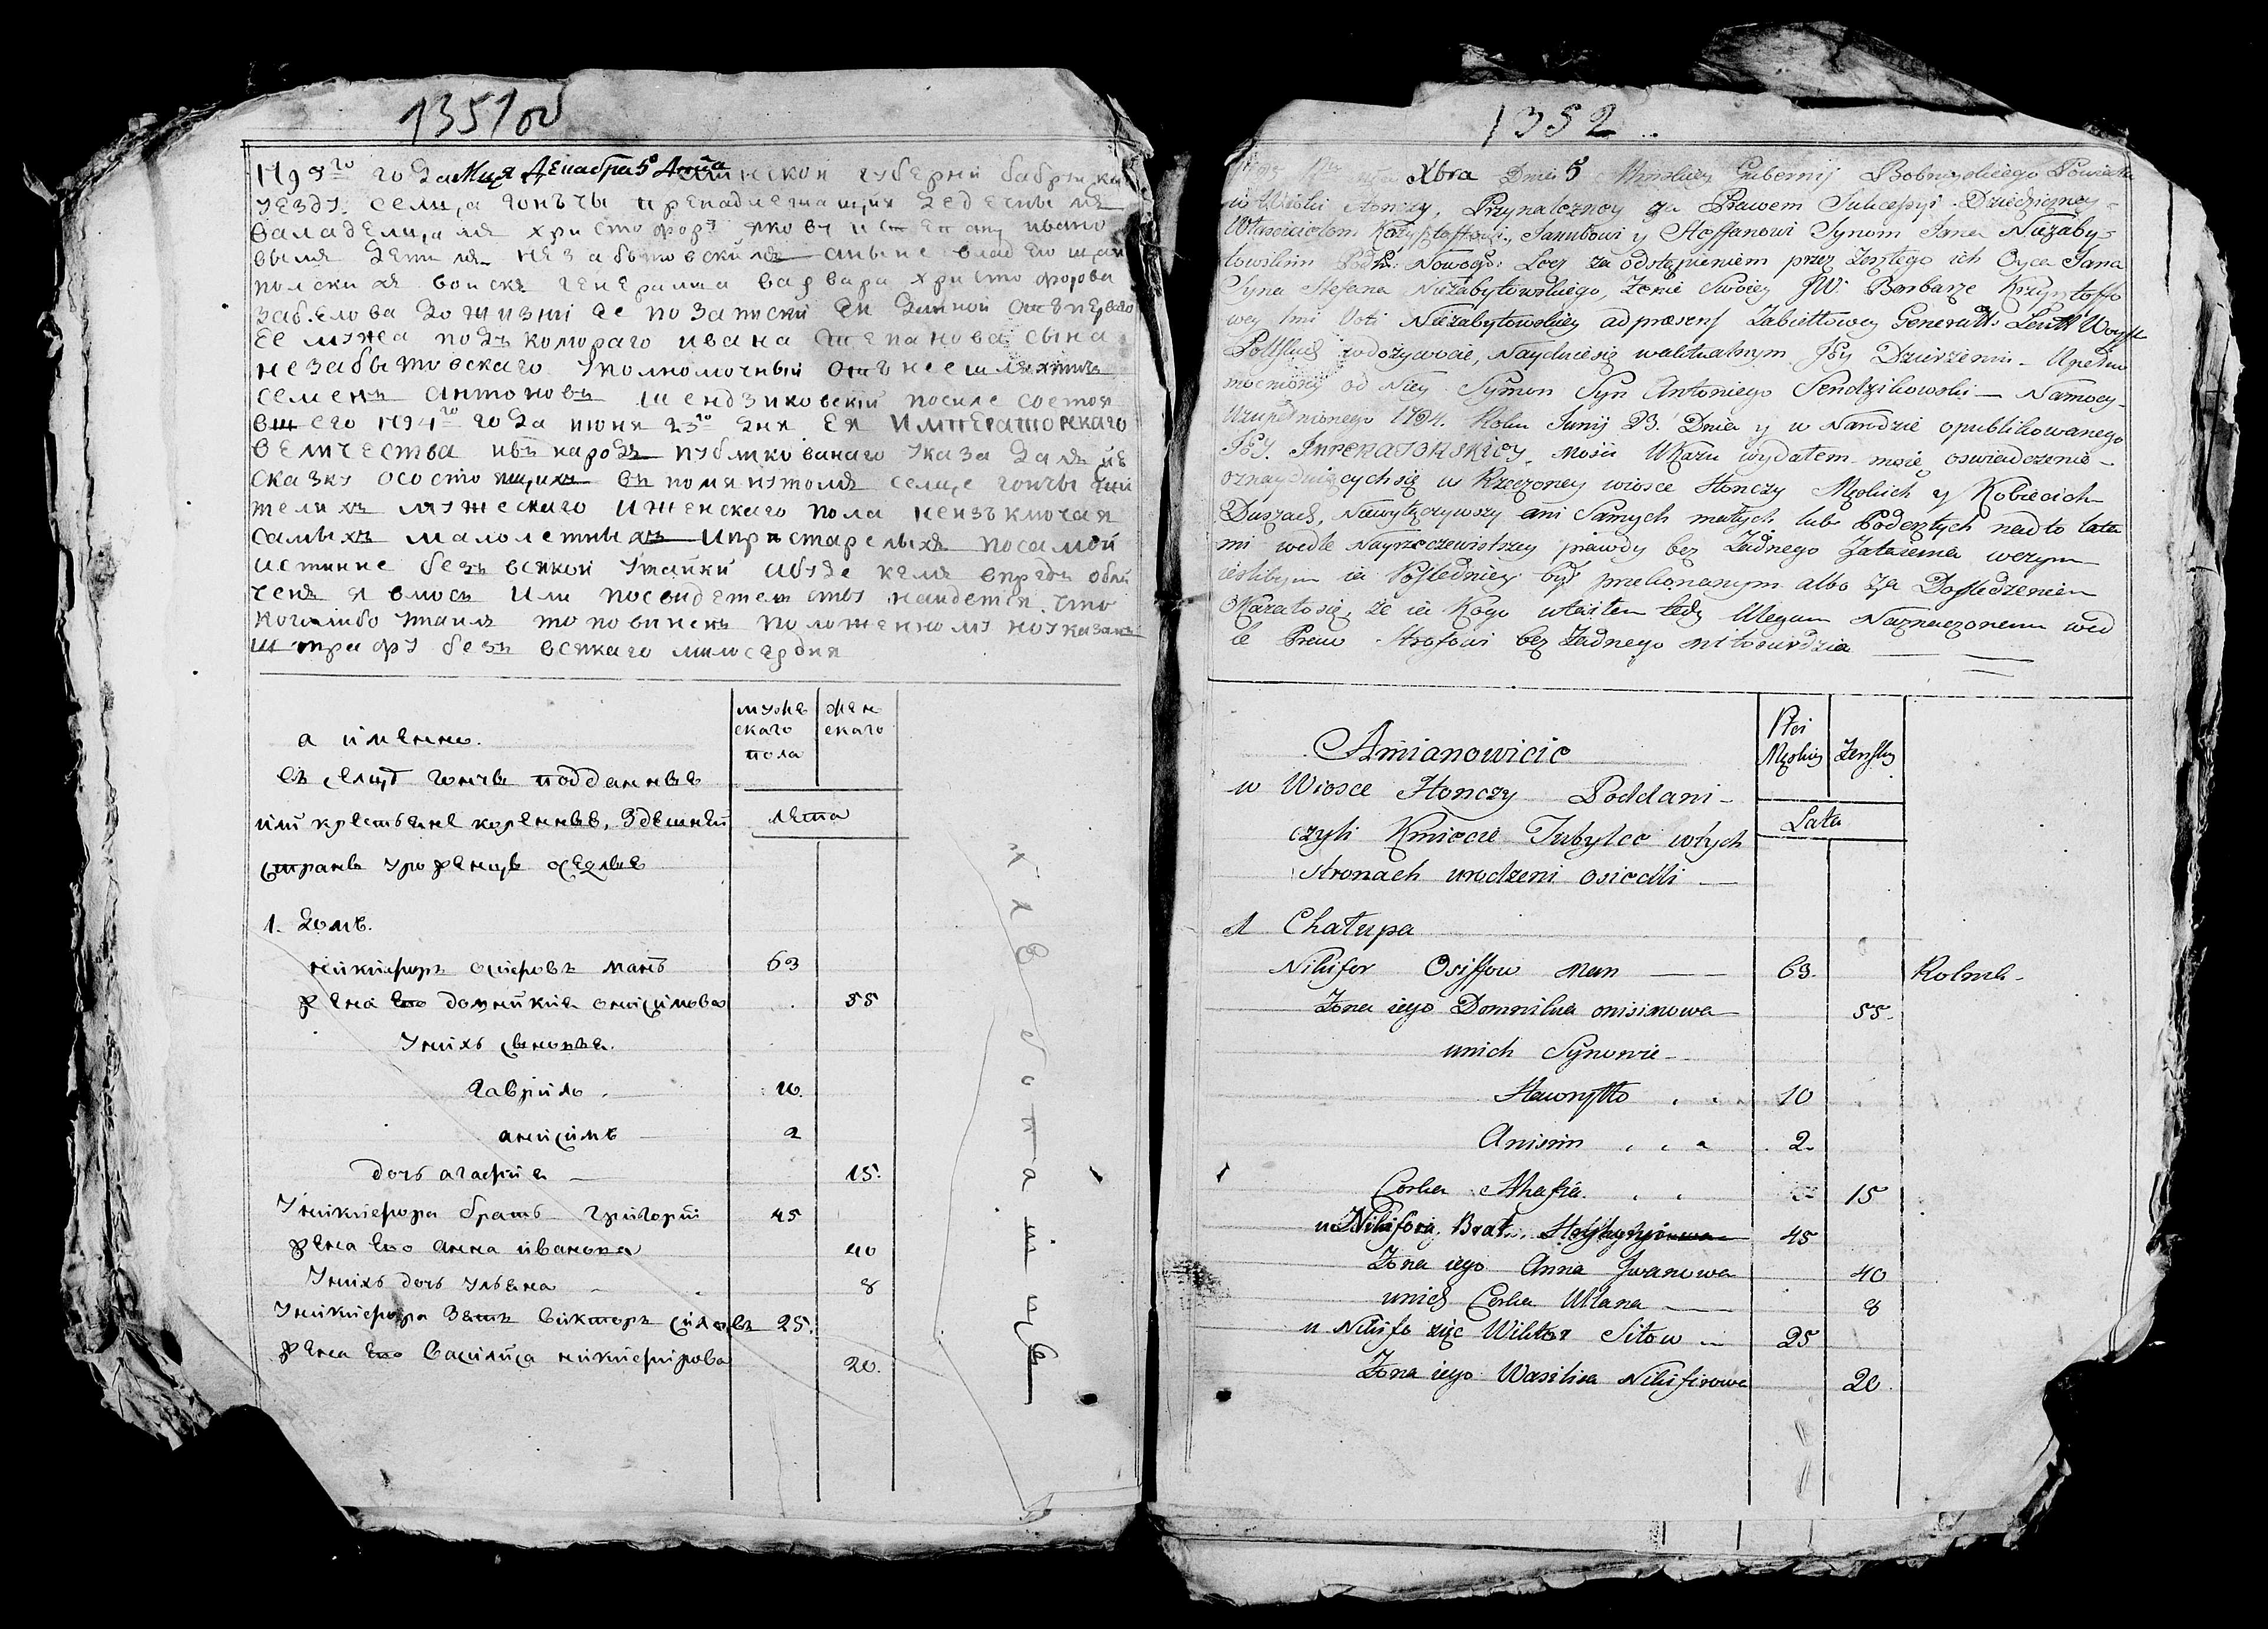 1351об
1795го года Мца Декабря 5 Дня Минской губерни бабруйскаго
уезду. селица гонъчы принадлежащих дедечным
валаделцам христофору якову и степану ивано
вым детям незабытовским а ныне владеющая
полских войскъ генералша варвара христофорова
забелова до жизни ее по записки ей данной отъ перваго
ее мужа подъ которого ивана степанова сына
незабытовскаго уполномочный отъ нее шляхтичъ
семенъ антоновъ шендзиковскій посиле состоя
вшегося 1794го года июня 23го дня Ея Императорскаго
величества ивъ народъ публикованаго указа далъ сию
сказку о состоящихъ въ помянутомъ селце гончы жи
телихъ мужескаго иженскаго пола неизъключая
самыхъ малолетныхъ ипрестарелыхъ посамой
истинне безъ всякой утайки ибуде кемъ впредь обли
ченъ явлюся или посвидетелству наидется что
коголибо утаилъ то повиненъ положенному по указамъ
штрафу безъ всякаго милосердия
а имянно.
въ селце гончы подданные
или крестьяне коренные, здешней
страны уроженцы оседлые
муже
скаго
пола
жен
скаго
лета
1. Домъ.
никифоръ осифовъ манъ 63
жена его домникия онисимова 55
у нихъ сыновья.
гаврило 10.
анисимъ 2
дочь агафия 15.
у никифора братъ григорий 45
жена его анна иванова 40
у нихъ дочь ульяна 8
у никифора зять викторъ силовъ 25.
жена его василиса никифорова 20.
1352
Xbra Dnia 5 Minskiey Gubernij Bobruyskiego Powiatu
w Wioski Honczy, Przynalezney za Prawem Sukcessyi Dziedziczney
Włascicielom Krzysztoffowi, Jakubowi y Steffanowi Synom Jana Niezaby-
towskim Podk: Nowogo: Lecz za odstąpieniem przez zeszłego ich Oyca Jana
Syna Stefana Niezabytowskiego, żonie Swoiey JW. Barbarze Krzysztoffo
wey 1mi Voti Niezabytowskiey ad præsens Zabiełłowey Generałł: Leutt Woysk
Polskich wdożywocie, Nayduiesię walitualnym Jey Dzierzeniu Upełno
mocniony od Niey Symon Syn Antoniego Sendzikowski — Namocy
uzupełnionego 1794. Roku Junij 23. Dnia y w Narodzie opublikowanego
Jey. Imperatorskiey Mosci Ukazu wydałem moie oswiadczenie
oznayduiącychsię w Rzeczoney wiosce Honczy Męskich y Kobiecich
Duszach, Niewyłączywszy ani Samych małych lub Podeszłych nadto lata
mi wedle Nayrzeczewistszey prawdy bez Żadnego Zataienia wczym
ieslibym ia Posledniey był przekonanym albo za Dosledzeniem
Okazałosię, że ia Kogo utaiłem tedy Ulegam Naznaczonemu wed
le Praw Strofowi bez Żadnego miłosierdzia
Amianowicie
w Wiosce Honczy Poddani
czyli Kmiecie Tubylce wtych
stronach urodzeni osiedli
Płci
Męskiey
Żeńskiey
Lata
1 Chałupa
Nikifor Osiffow Man 63.
Żona iego Domnikia onisimowa 55.
unich Synowie
Hawryłło 10
Anisim 2
Corka Ahafia 15
u Nikifora Brat 45
Żona iego Anna Iwanowa 40
unich Corka Ulana 8
u Nikifo zięc Wiktor Siłow 25
Żona iego Wasilisa Nikiforowa 20.